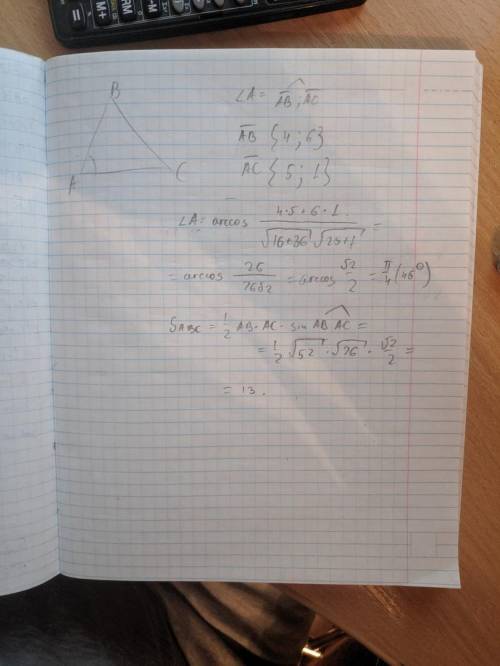 M+
M-
B
A
C
∠A = AB; AC
AB {4; 6}
AC {5; 1}
∠A = arccos (4·5+6·1) / (√16+36 √25+1) =
= arccos 26 / 26√2 = arccos √2/2 = π/4 (45°)
S ABC = 1/2 AB · AC · sin AB AC =
= 1/2 √52 · √26 · √2/2 =
= 13.